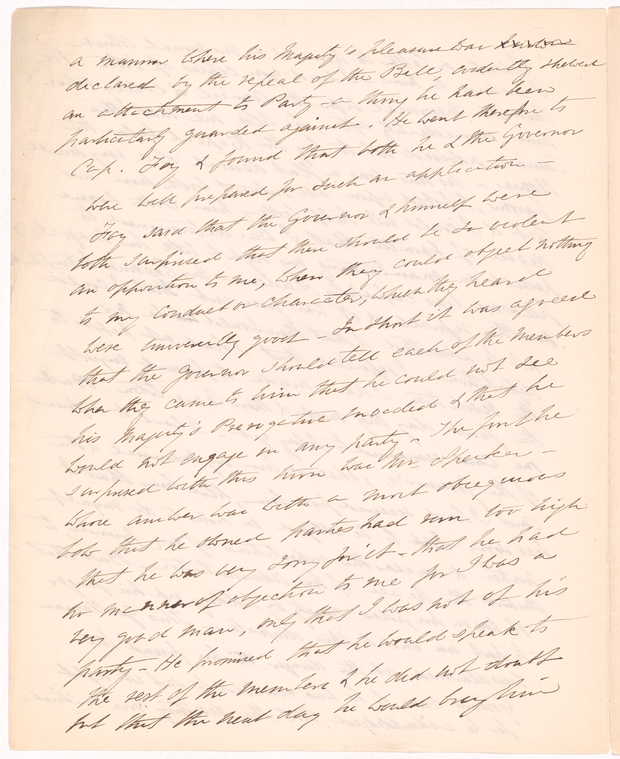 a manner where his Majesty's pleasure was
declared by the repeal of the Bill, evidently shewed
an attachment to Party - a thing he had been
particularly guarded against. He went therefore to
Cap. Foy & found that both he & the Governor
were well prepared for such an application -
Foy said that the Governor & himself were
both surprised that there should be so violent
an opposition to me, when they could object nothing
to my Conduct or Character, which they heard
were universally good - In short it was agreed
that the Governor should tell each of the members
when they came to him that he could not see
his Majesty's Prerogative invaded & that he
would not engage in any party - The first he
surprised with this was Mr Speaker -
whose answer was with a most obsequious
bow that he owned parties had run too high
that he was very sorry for it - that he had
no manner of objection to me for I was a
very good man, only that I was not of his
party - He promised that he would speak to
the rest of the members & he did not doubt
but that the next day he would bring him